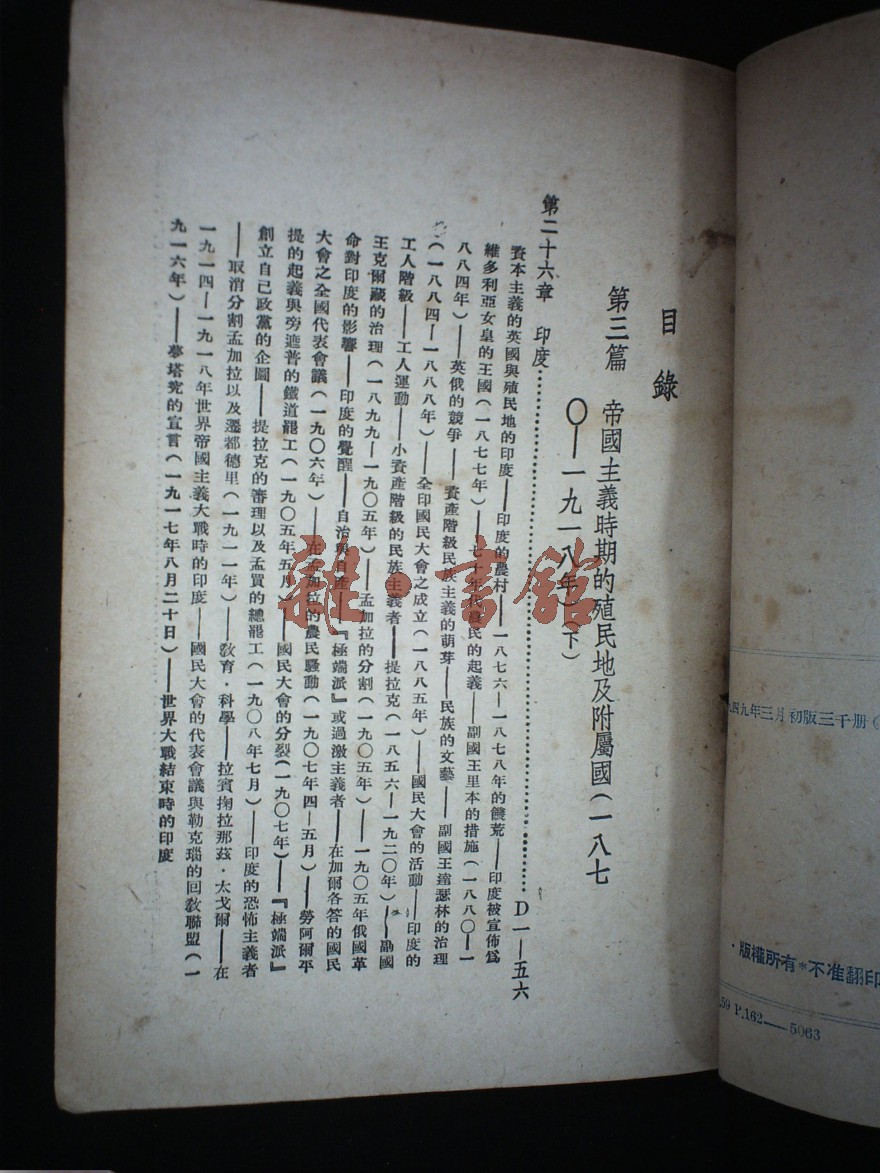 目錄
第三篇 帝國主義時期的殖民地及附屬國(一八七
〇—一九一八年)(下)
第二十六章 印度……………………D一—五六
資本主義的英國與殖民地的印度——印度的農村——一八七六—一八七八年的饑荒——印度被宣佈爲
維多利亞女皇的王國(一八七七年)——七十年代農民的起義——副國王里本的措施(一八八〇—一
八八四年)——英俄的競爭——資產階級民族主義的萌芽——民族的文藝——副國王達瑟林的治理
(一八八四—一八八八年)——全印國民大會之成立(一八八五年)——國民大會的活動——印度的
工人階級——工人運動——小資產階級的民族主義者——提拉克(一八五六—一九二〇年)——副國
王克爾藏的治理(一八九九—一九〇五年)——孟加拉的分割(一九〇五年)——一九〇五年俄國革
命對印度的影響——印度的覺醒——自治與自產——『極端派』或過激主義者——在加爾各答的國民
大會之全國代表會議(一九〇六年)——在孟加拉的農民騷動(一九〇七年四—五月)——勞阿爾平
提的起義與旁遮普的鐵道罷工(一九〇五年五月)——國民大會的分裂(一九〇七年)——『極端派』
創立自己政黨的企圖——提拉克的審理以及孟買的總罷工(一九〇八年七月)——印度的恐怖主義者
——取消分割孟加拉以及遷都德里(一九一一年)——教育·科學——拉賓掬拉那茲·太戈爾——在
一九一四—一九一八年世界帝國主義大戰時的印度——國民大會的代表會議與勒克瑙的回教聯盟(一
九一六年)——蒙塔究的宣言(一九一七年八月二十日)——世界大戰結束時的印度
雜·書館
九四九年三月初版三千册(
·版權所有*不准翻印
.59 P.162——5063